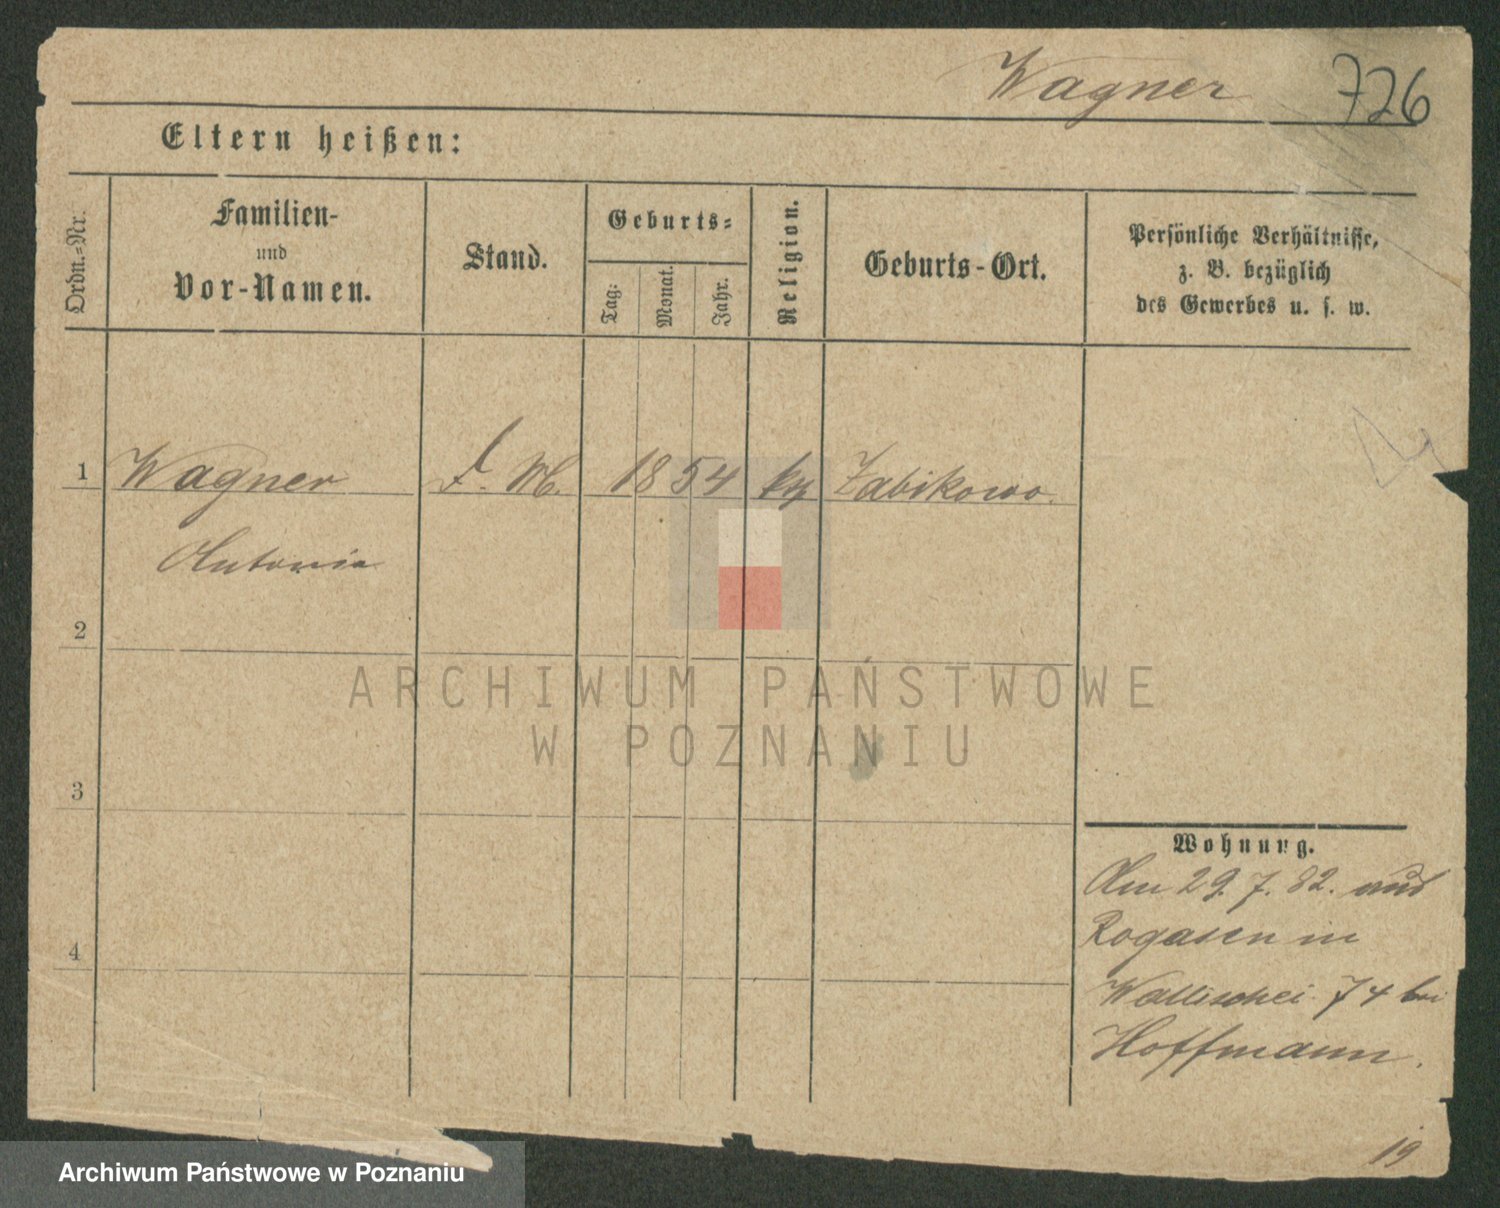 Wagner 726
Eltern heißen:
Ordn.=Nr.
Familien-
und
Vor-Namen.
Stand.
Geburts=
Tag.
Monat.
Jahr.
Religion.
Geburts-Ort.
Persönliche Verhältnisse,
z. B. bezüglich
des Gewerbes u. s. w.
1 Wagner 1854 Zabikowo.
Antonia
2
3
4
Wohnung.
Am 29.7.82. aus
Rogasen in
Wallischei 74 bei
Hoffmann.
19
ARCHIWUM PAŃSTWOWE
W POZNANIU
Archiwum Państwowe w Poznaniu